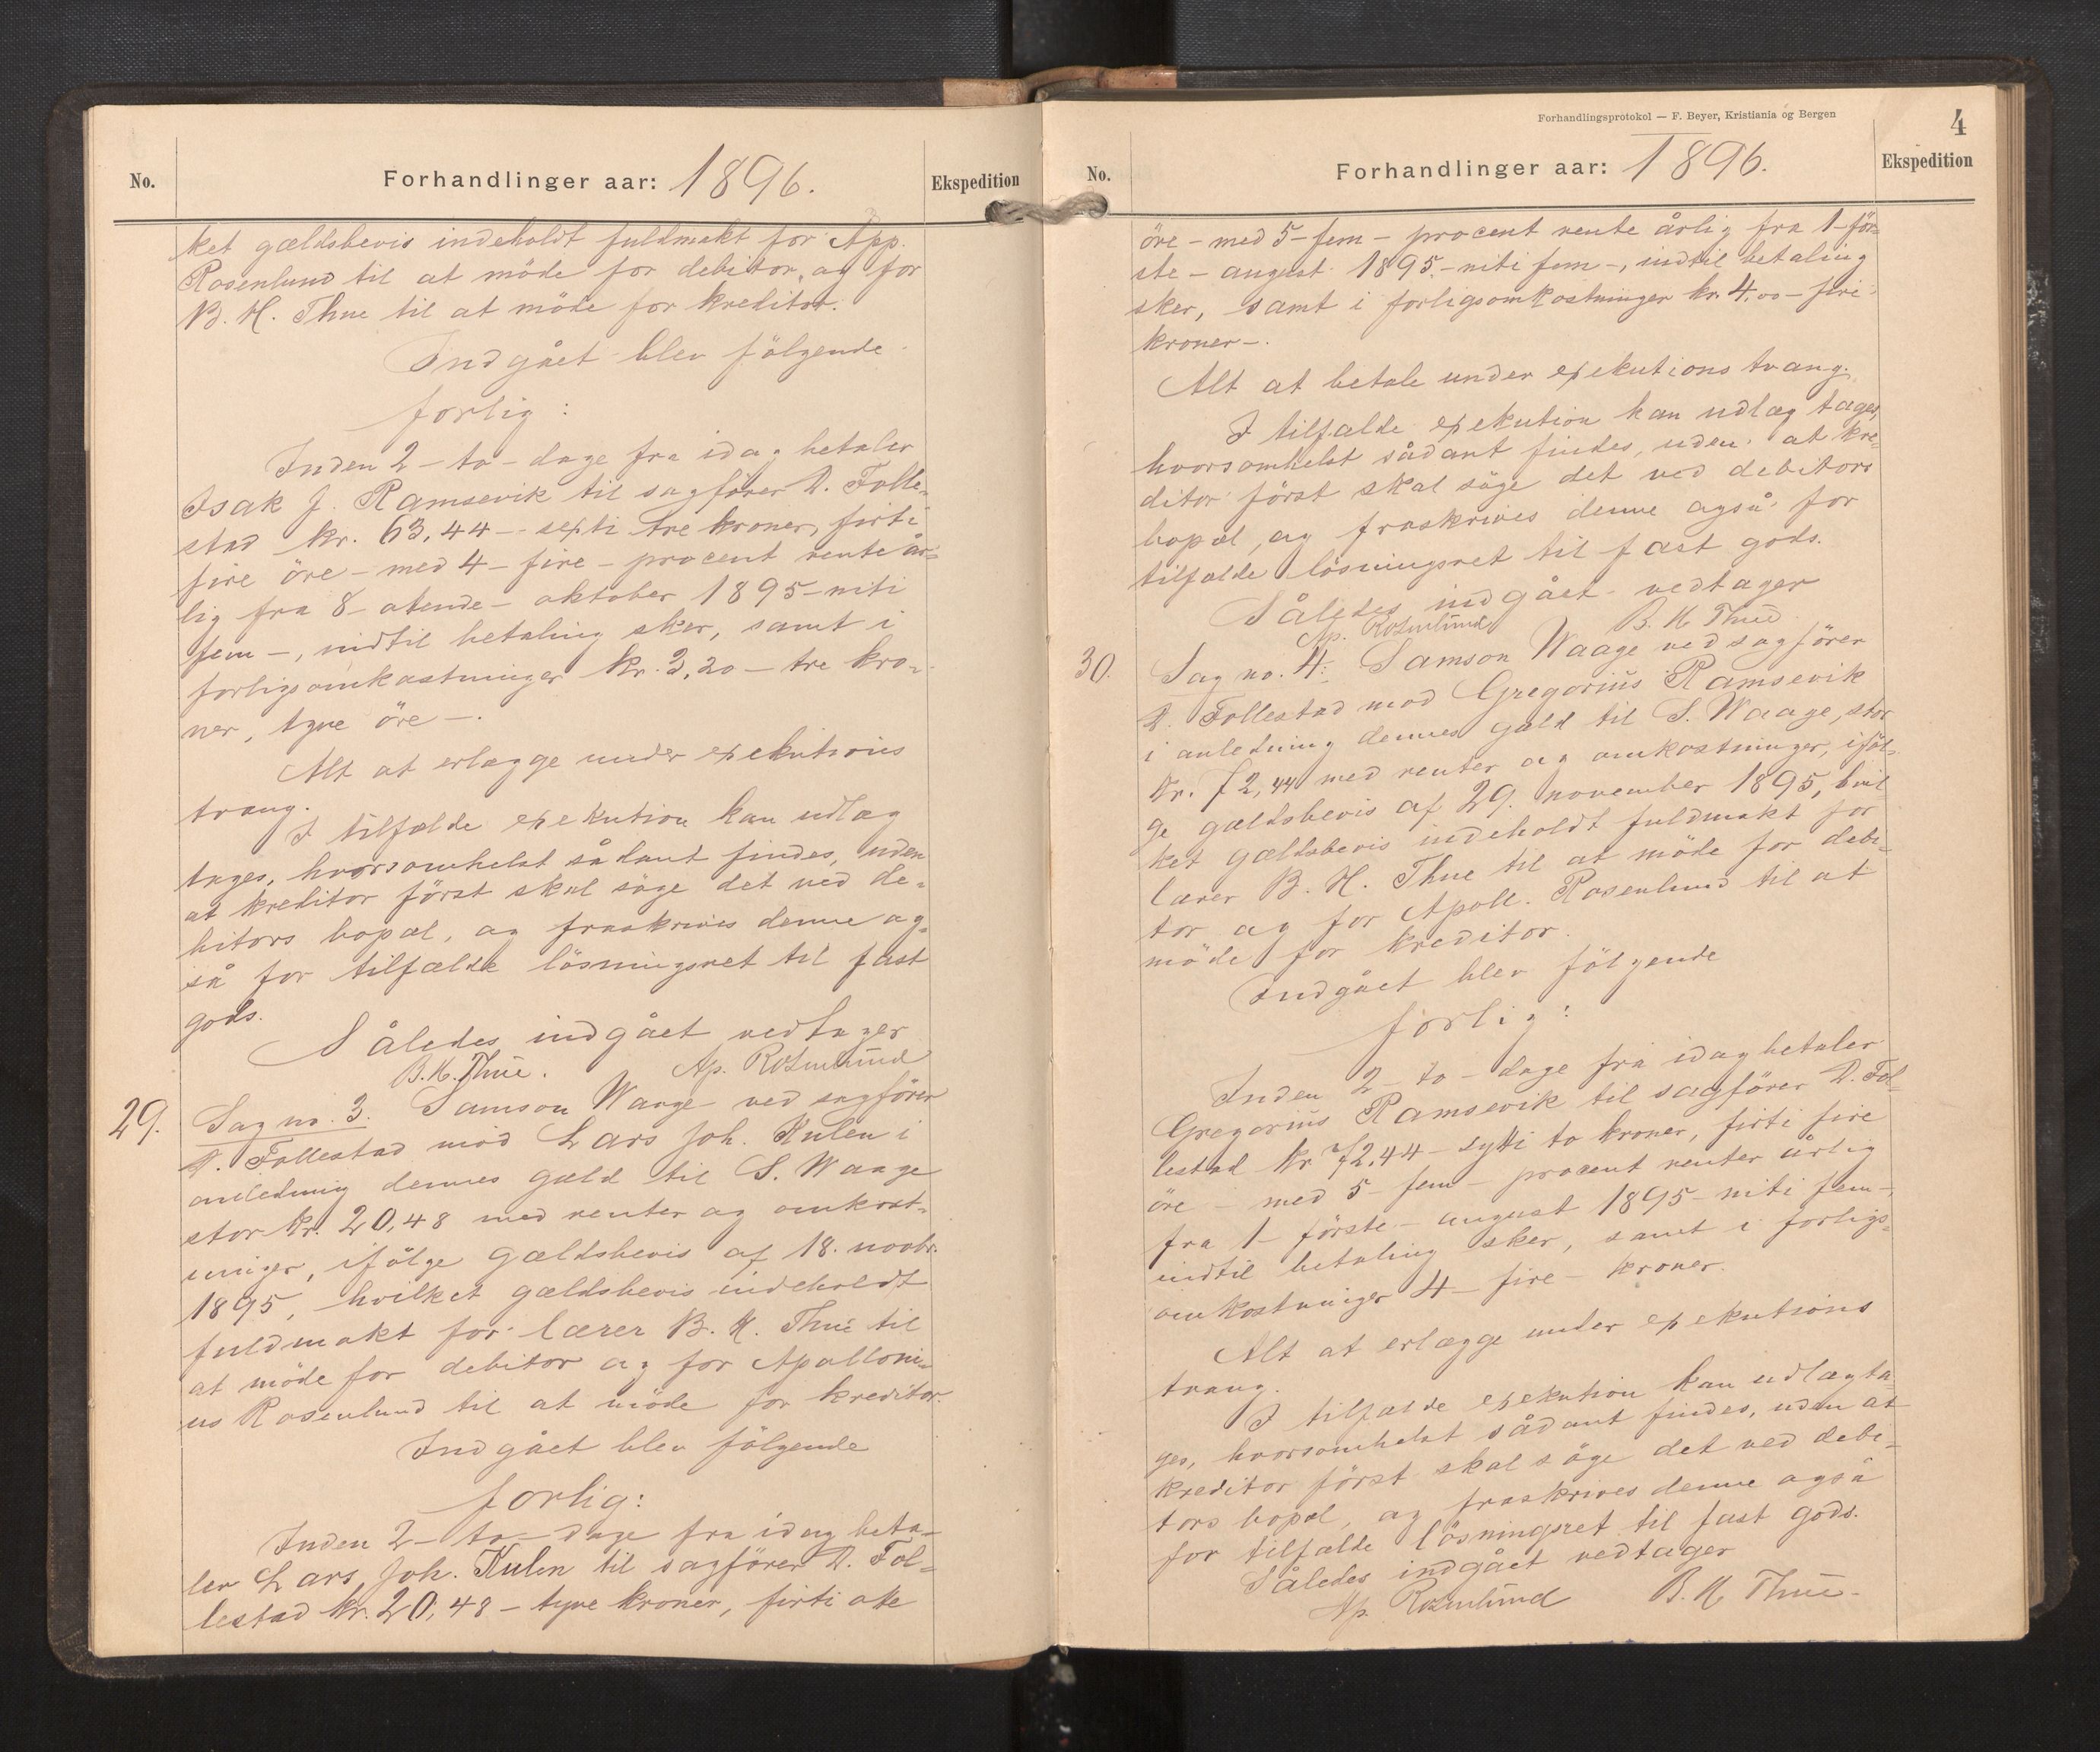 No.
Forhandlinger aar: 1896.
Ekspedition
ket gældsbevis indeholdt fuldmakt for App.
Rosenlund til at möde for debitor, og for
B. H. Thue til at möde for kreditor.
Indgået blev fölgende
forlig:
Inden 2 - to - dage fra idag betaler
Isak J. Ramsevik til sagförer D. Folle-
stad kr. 63,44 - septi tre kroner, firti
fire öre - med 4 - fire - procent rente år=
lig fra 8 - otende - oktober 1895 - niti
fem -, indtil betaling sker, samt i
forligsomkostninger kr. 3,20 - tre kro-
ner, tyve öre -.
Alt at erlægge under expekutions
tvang.
I tilfælde expekution kan udlæg
tages, hvorsomhelst sådant findes, uden
at kreditor först skal söge det ved de-
bitors bopæl, og fraskrives denne og-
så for tilfælde lösningsret til fast
gods.
Således indgået vedtager
B. H. Thue. Ap. Rosenlund
29.
Sag no. 3. Samson Waage ved sagförer
D. Follestad mod Lars Joh. Kulen i
anledning dennes gæld til S. Waage
stor kr. 20,48 med renter og omkost-
ninger, ifölge gældsbevis af 18. novbr.
1895, hvilket gældsbevis indeholdt
fuldmakt for lærer B. H. Thue til
at möde for debitor og for Apolloni-
us Rosenlund til at möde for kreditor.
Indgået blev fölgende
forlig:
Inden 2 - to - dage fra idag beta-
ler Lars Joh. Kulen til sagförer D. Fol-
lestad kr. 20,48 - tyve kroner, firti ote
Forhandlingsprotokol — F. Beyer, Kristiania og Bergen
4
No.
Forhandlinger aar: 1896.
Ekspedition
öre - med 5 - fem - procent rente årlig fra 1 - för-
ste - august 1895 - niti fem -, indtil betaling
sker, samt i forligsomkostninger kr. 4,00 - fire
kroner -.
Alt at betale under expekutions tvang.
I tilfælde expekution kan udlæg tages,
hvorsomhelst sådant findes, uden at kre-
ditor först skal söge det ved debitors
bopæl, og fraskrives denne også for
tilfælde lösningsret til fast gods.
Således indgået vedtager
Ap. Rosenlund B. H. Thue
30.
Sag no. 4. Samson Waage ved sagförer
D. Follestad mod Gregorius Ramsevik
i anledning dennes gæld til S. Waage, stor
kr. 72,44 med renter og omkostninger, iföl-
ge gældsbevis af 29. november 1895, hvil
ket gældsbevis indeholdt fuldmakt for
lærer B. H. Thue til at möde for debi-
tor og for Apoll. Rosenlund til at
möde for kreditor.
Indgået blev fölgende
forlig:
Inden 2 - to - dage fra idag betaler
Gregorius Ramsevik til sagförer D. Fol-
lestad kr. 72,44 - sytti to kroner, firti fire
öre - med 5 - fem - procent renter årlig
fra 1 - förste - august 1895 - niti fem -,
indtil betaling sker, samt i forligs-
omkostninger 4 - fire - kroner.
Alt at erlægge under expekutions
tvang.
I tilfælde expekution kan udlæg ta-
ges, hvorsomhelst sådant findes, uden at
kreditor först skal söge det ved debi-
tors bopæl, og fraskrives denne også
for tilfælde lösningsret til fast gods.
Således indgået vedtager
Ap. Rosenlund B. H. Thue